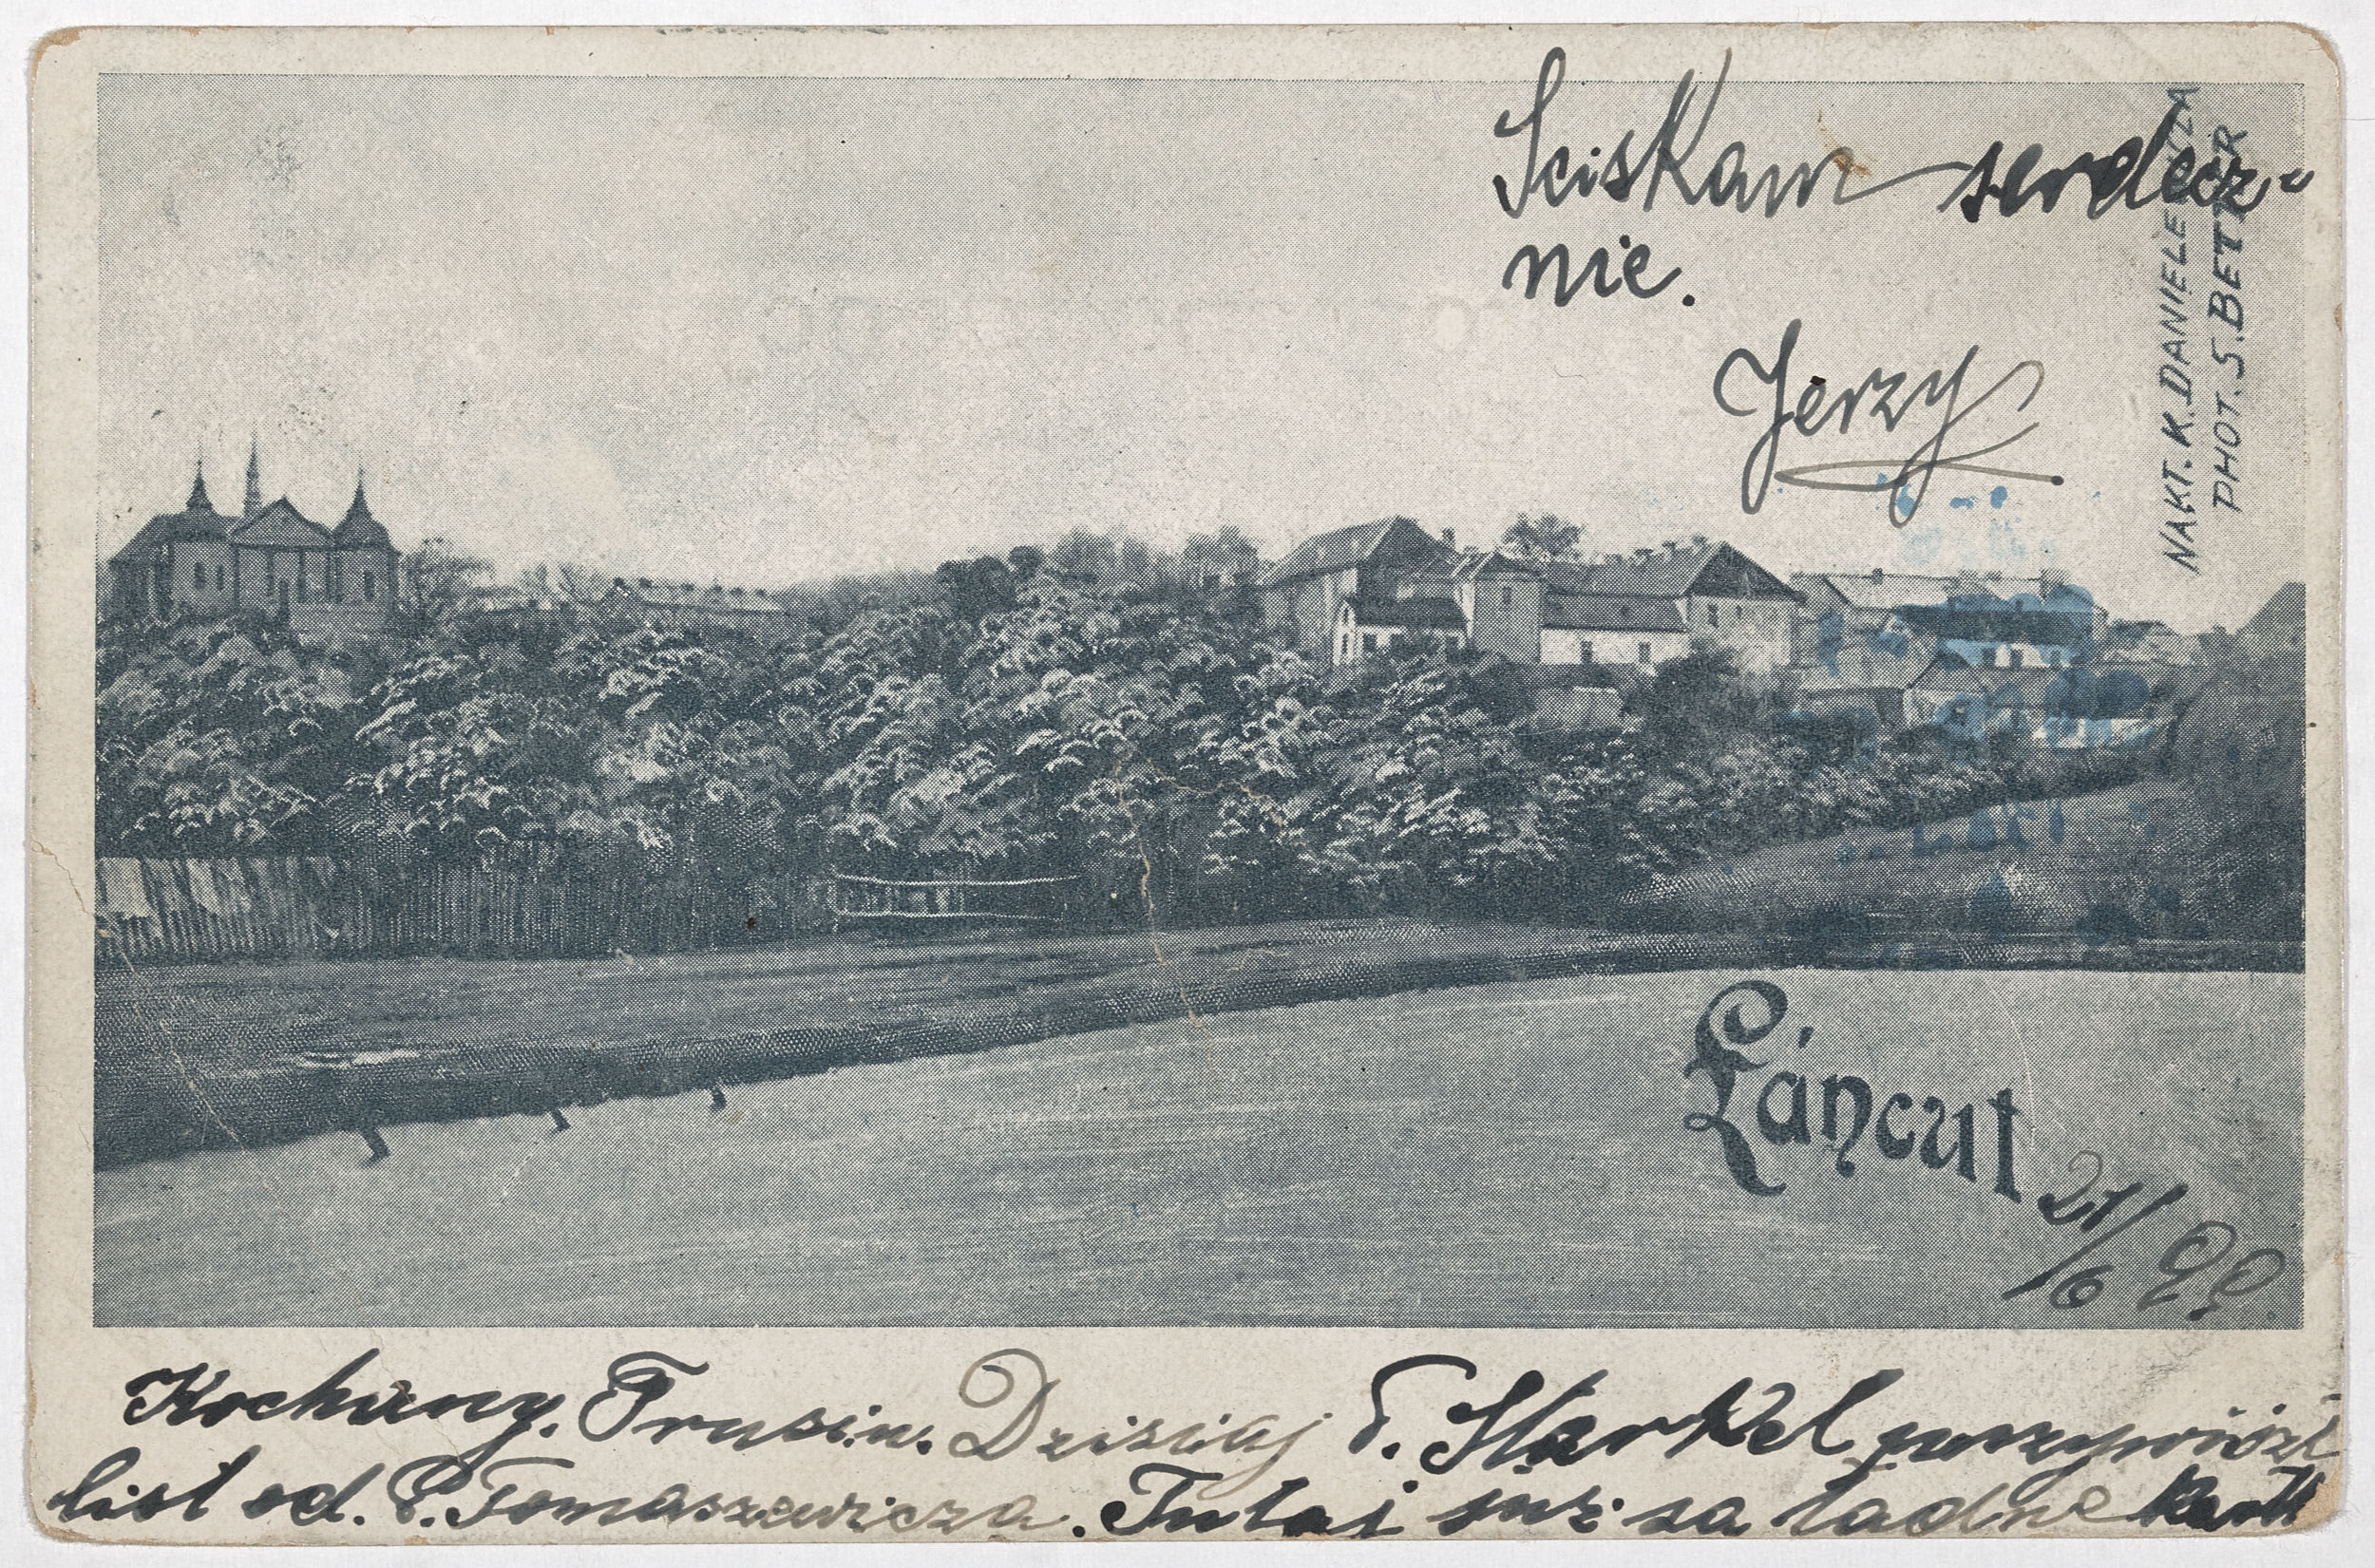 Sciskam serdecz-
nie.
Jerzy
NAKT. K. DANIELEWICZA
PHOT. S. BETTER
Łáncut
21/6 99.
Kochany. Trusiu. Dzisiaj P. Starkel przywiózł
list od. P. Tomaszewicza. Tutaj już są ładne